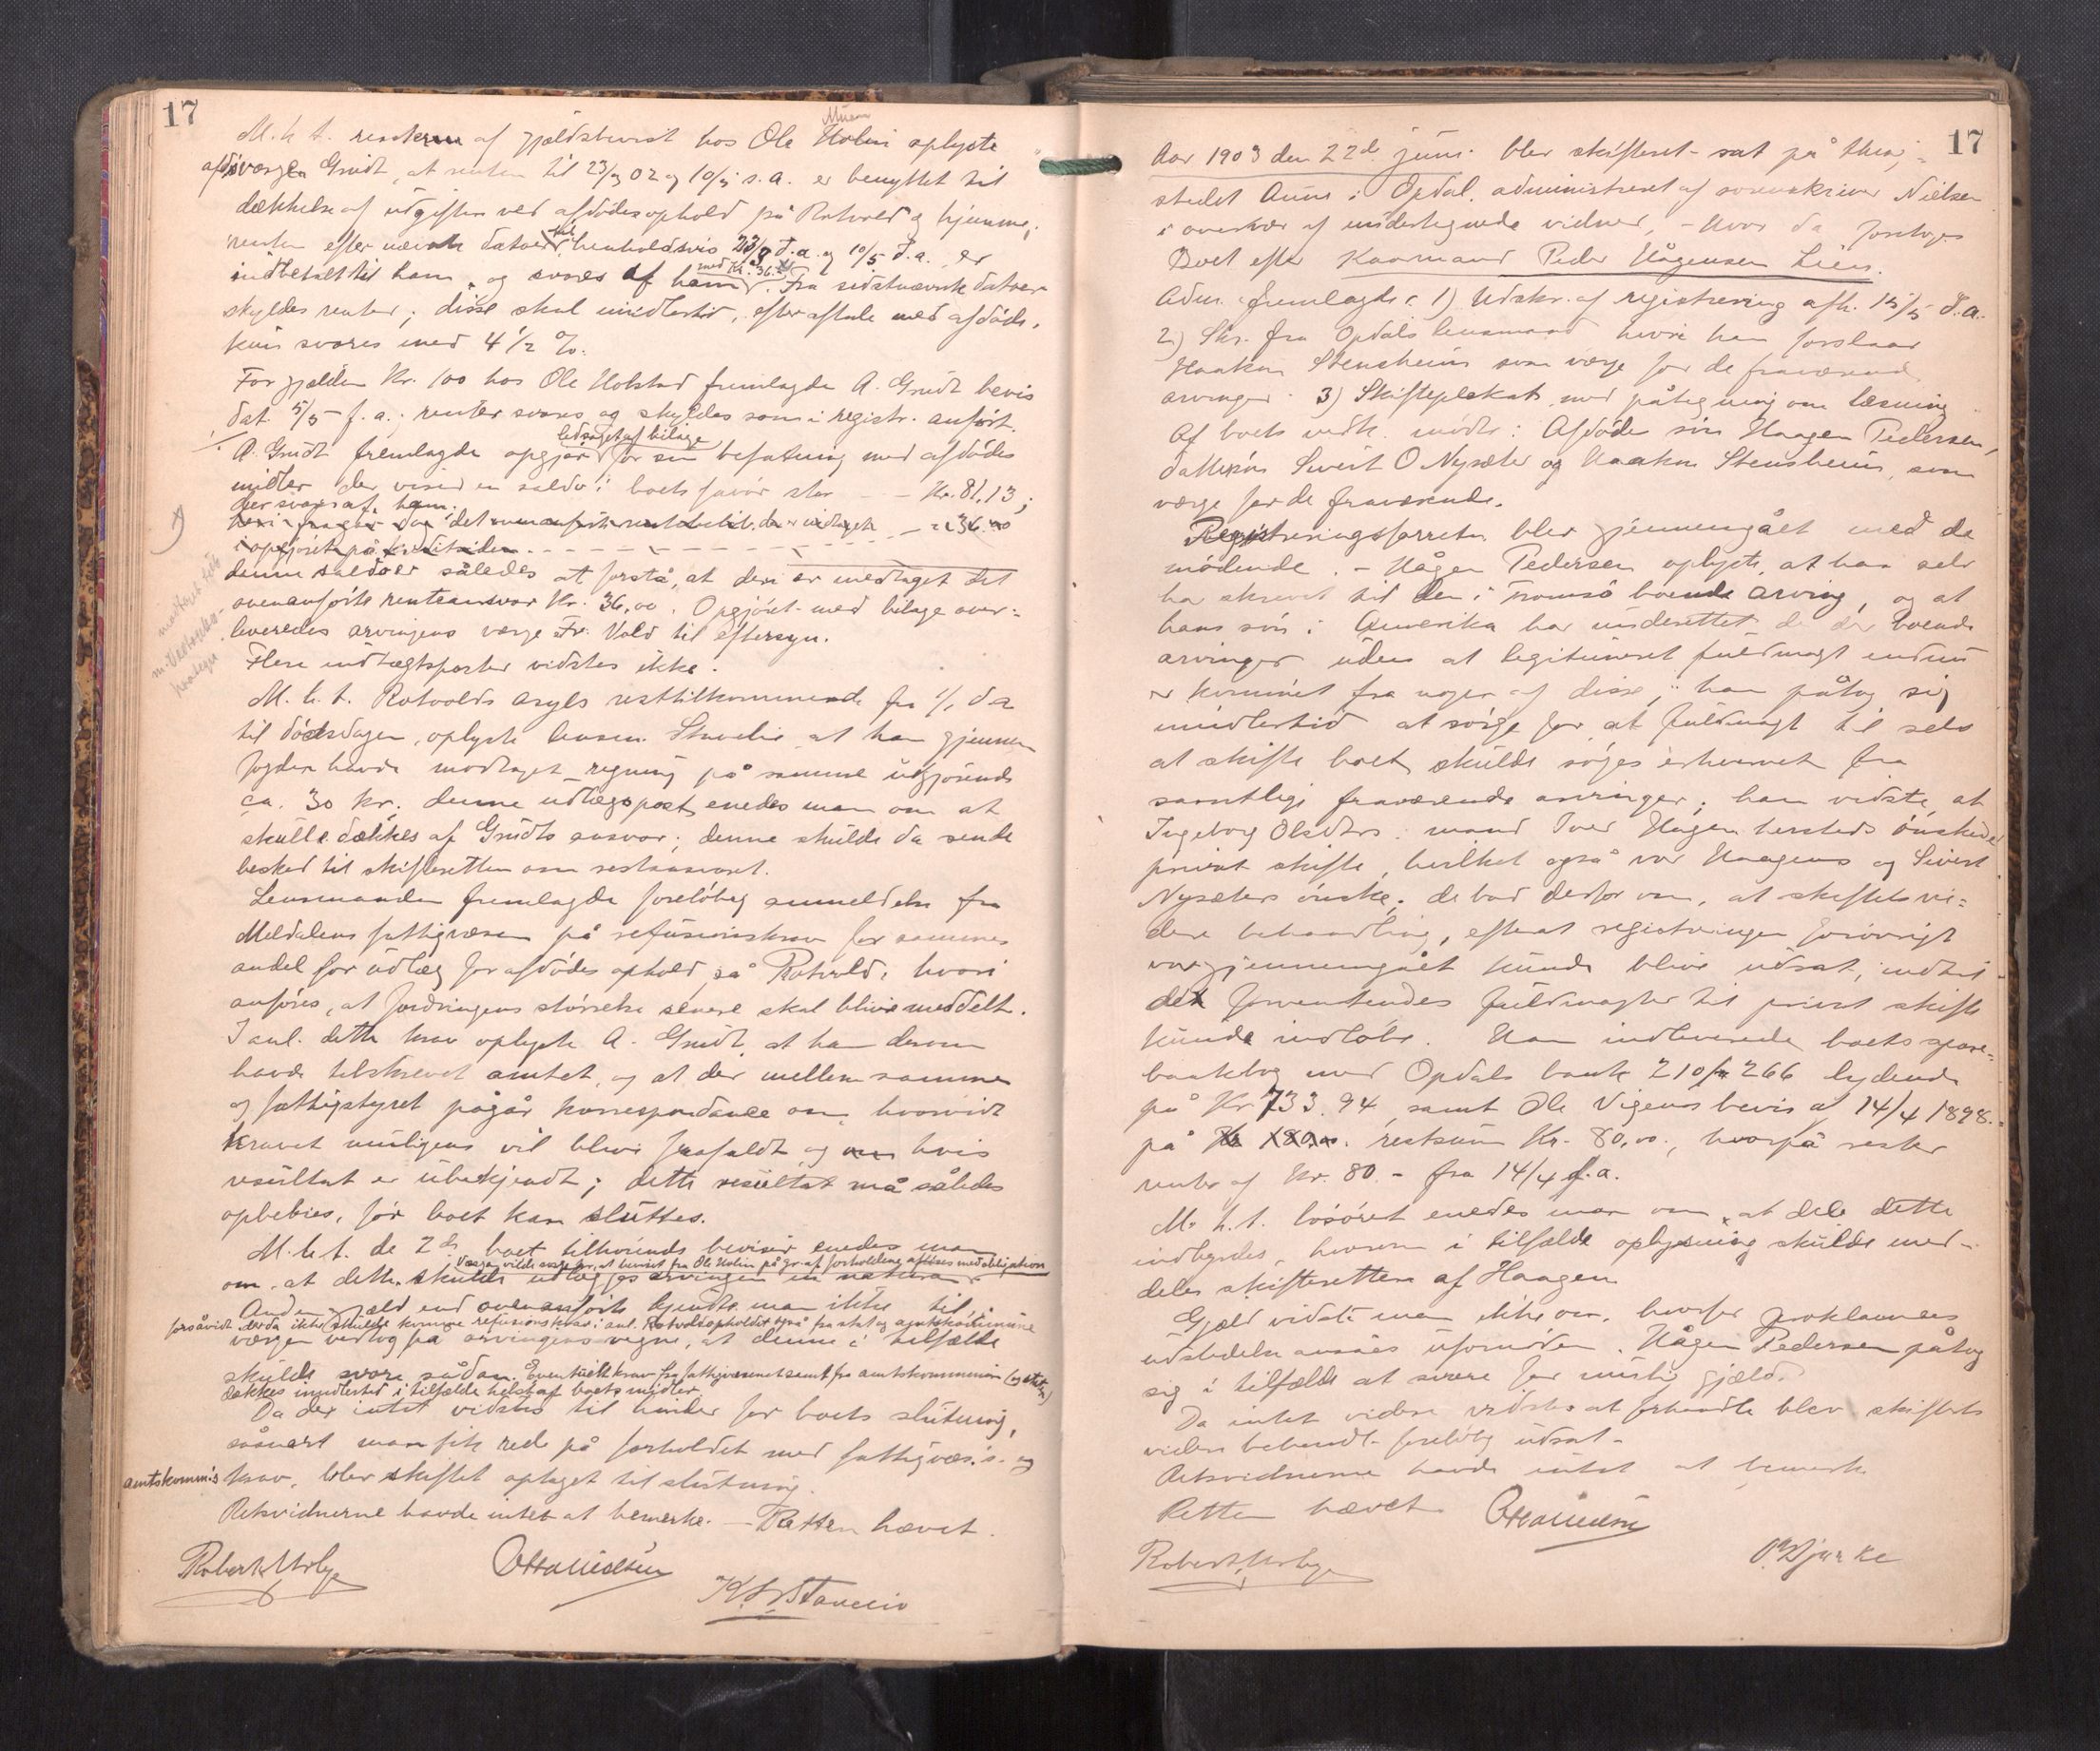 17
M. h. t. renterne af gjældsbevist hos Ole Holm oplyste
afdøs værge Grudt, at renten til 23/9 02 og 10/5 s.a. er benyttet til
dækkelse af udgifter ved afdødes ophold på Rotvold og hjemme;
renten efter nævnte datoer til henholdsvis 23/3 d.a. og 10/5 d.a. er
indbetalt til ham, og svares af ham med Kr. 36.00. Fra sidstnævnte datoer
skyldes renter; disse skal imidlertid, efter aftale med afdøde,
kun svares med 4 1/2 %.
For gjælden Kr. 100 hos Ole Holstad fremlagde A. Grudt bevis
dat. 5/5 f.a.; renter svares og skyldes som i registr. anført.
A. Grudt fremlagde opgjør ledsaget af bilage for sin befatning med afdødes
midler der viser en saldo i boets favør stor - - Kr. 81,13;
der svares af ham.
denne saldo er således at forstå, at deri er medtaget det
ovenanførte renteansvar Kr. 36,00. Opgjøret med bilage over-
leveredes arvingens værge Fr. Vold til eftersyn.
Flere indtægtsposter vidstes ikke.
M. h. t. Rotvolds asyls resttilkommende fra 1/1 d.a.
til dødsdagen, oplyste lensm. at han gjennem
fogden havde modtaget regning på samme udgjørende
ca. 30 kr.; denne udlægspost enedes man om at
skulle dækkes af Grudts ansvar; denne skulde da sende
besked til skifteretten om restansvaret.
Lensmanden fremlagde foreløbig anmeldelse fra
Meldalens fattigvæsen på refusionskrav for sammes
andel for udlæg for afdødes ophold på Rotvold, hvori
anføres, at fordringens størrelse senere skal blive meddelt.
I anl. dette krav oplyste A. Grudt, at han derom
havde tilskrevet amtet, og at der mellem samme
og fattigstyret pågår korrespondance om, hvorvidt
kravet muligens vil blive frafaldt og hvis
resultat er ubekjendt; dette resultat må således
opbebies, før boet kan sluttes.
M. h. t. de 2de boet tilhørende beviser enedes man
Værgen vilde sørge for, at beviset fra Ole Holm på gr. af forholdene afløses med obligation
om, at dette skulde udlægges arvingen in natura.
Anden gjæld end ovenanførte kjendte man ikke til,
forsåvidt der da ikke skulde komme refusionskrav i anl. Rotvoldopholdet også fra stat og amtskommune
værgen vedtog på arvingens vegne, at denne i tilfælde
skulde svare sådan. Eventuelt krav fra fattigvæsenet samt fra amtskommunen (og staten)
dækkes imidlertid i tilfælde helst af boets midler.
Da der intet vidstes til hinder for boets slutning,
såsnart man fik rede på forholdet med fattigvæs.'s og
amtskomm's krav, blev skiftet optaget til slutning.
Retsvidnerne havde intet at bemerke. — Retten hævet.
Robert Urbye
Otto Nielsen
17
Aar 1903 den 22de juni blev skifteret sat på thing-
stedet Aune i Opdal, administreret af sorenskriver Nielsen
i overvær af undertegnede vidner, - hvor da foretoges
Boet efter Kaarmand Peder Hågensen Lien.
Adm. fremlagde: 1) Udskr. af registrering afh. 15/5 d.a.
2) Skr. fra Opdals lensmand hvori han forslaar
Haakon Stensheim som værge for de fraværende
arvinger. 3) Skifteplakat med påtegning om læsning.
Af boets vedk. mødte: Afdødes søn Haagen Pedersen,
dattersøn Sivert O Nysæter og Haakon Stensheim, som
værge for de fraværende.
Registreringsforretn. blev gjennemgået med de
mødende. - Hågen Pedersen oplyste, at han selv
har skrevet til den i Tromsø boende arving, og at
hans søn i Amerika har underrettet de der boende
arvinger uden at legitimeret fuldmagt endnu
er kommet fra nogen af disse; han påtog sig
imidlertid at sørge for, at fuldmagt til selv
at skifte boet, skulde søges erhvervet fra
samtlige fraværende arvinger; han vidste, at
Ingeborg Olsdtrs. mand Iver Hågen ønskede
privat skifte, hvilket også var Haagens og Sivert
Nysæters ønske; de bad derfor om, at skiftets vi-
dere behandling, efterat registreringen forøvrigt
var gjennemgået kunde blive udsat, indtil
de forventendes fuldmagter til privat skifte
kunde indløbe. Han indleverede boets spare-
bankbog med Opdals bank 210/266 lydende
på Kr. 733.94, samt Ole Vigens bevis af 14/4 1898
på restsum Kr. 80,00, hvorpå rester
renter af Kr. 80.- fra 14/4 f.a.
M. h. t. løsøret enedes man om, at dele dette
indbyrdes hvorom i tilfælde oplysning skulde med-
deles skifteretten af Haagen.
Gjæld vidste man ikke om, hvorfor proklamas
udstedelse ansåes ufornøden. Hågen Pedersen påtog
sig i tilfælde at svare for mulig gjæld.
Da intet videre vidstes at forhandle blev skiftets
videre behandl. foreløbig udsat.
Retsvidnerne havde intet at bemerke.
Retten hævet.
Otto Nielsen
Robert Urbye